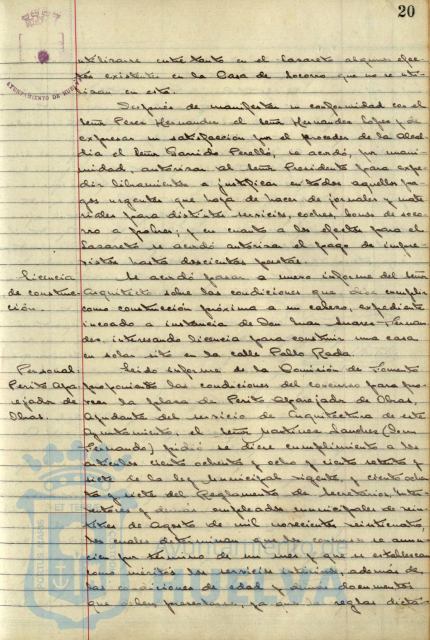 20
AYUNTAMIENTO DE HUELVA
utilizarse entretanto en el Lazareto algunos efec-
tos existentes en la Casa de Socorro que no se uti-
lizan en esta.
Después de manifestar su conformidad con el
señor Perez Hernandez el señor Hernandez Lopez y de
expresar su satisfacción por el proceder de la Alcal-
dia el señor Garrido Perelló, se acordó, por unani-
midad, autorizar al señor Presidente para expe-
dir libramientos a justificar en todos aquellos pa-
gos urgentes que haya de hacer de jornales y mate-
riales para distintos servicios, coches, bonos de soco-
rro a pobres; y en cuanto a los efectos para el
Lazareto se acordó autorizar el pago de impre-
vistos hasta doscientas pesetas.
Licencia
de construc-
ción.
Se acordó pasar a nuevo informe del señor
Arquitecto sobre las condiciones que dice cumplir
como construcción próxima a un cabezo, expediente
incoado a instancia de Don Juan Suarez Fernan-
dez, interesando licencia para construir una casa
en solar sito en la calle Pablo Rada.
Personal.
Perito Apa-
rejador de
Obras.
Leido informe de la Comisión de Fomento
proponiendo las condiciones del concurso para pro-
veer la plaza de Perito Aparejador de Obras,
Ayudante del servicio de Arquitectura de este
Ayuntamiento, el señor Martinez Sanchez (Don
Fernando) pidió se diese cumplimiento a los
artículos ciento ochenta y ocho y ciento noventa y
siete de la ley Municipal vigente, y ciento ochen-
ta y siete del Reglamento de Secretarios, Inter-
ventores y demás empleados municipales de vein-
titres de Agosto de mil novecientos veinticuatro,
los cuales determinan que los concursos se anun-
cien por término de un mes y que se establezcan
como méritos los servicios interinos, además de
las condiciones de edad y demás documentos
que deben presentarse, ya que las reglas dicta-